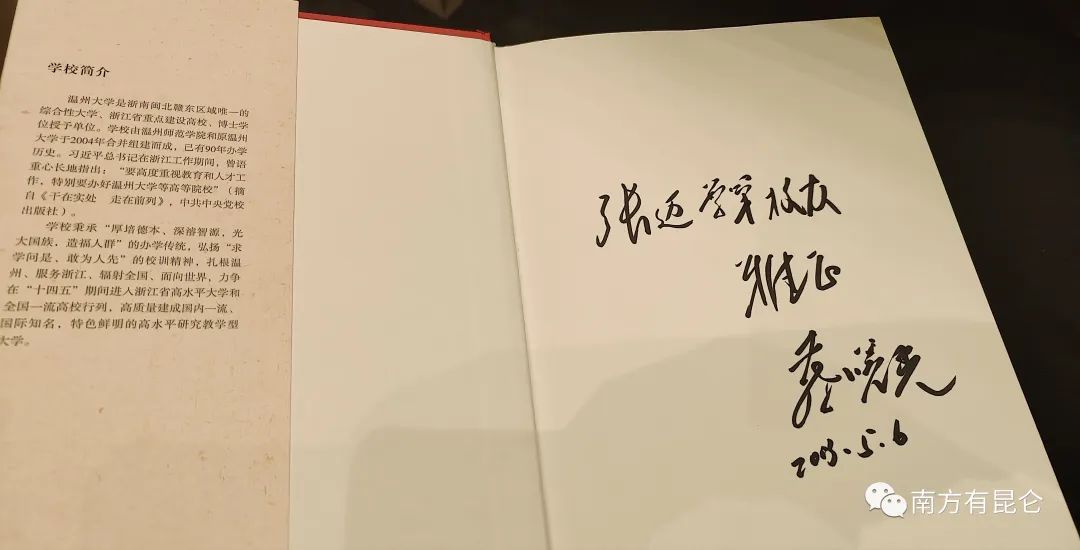 学校简介
温州大学是浙南闽北赣东区域唯一的
综合性大学、浙江省重点建设高校、博士学
位授予单位。学校由温州师范学院和原温州
大学于2004年合并组建而成，已有90年办学
历史。习近平总书记在浙江工作期间，曾语
重心长地指出：“要高度重视教育和人才工
作，特别要办好温州大学等高等院校”（摘
自《干在实处 走在前列》，中共中央党校
出版社）。
学校秉承“厚培德本、深濬智源，光
大国族，造福人群”的办学传统，弘扬“求
学问是、敢为人先”的校训精神，扎根温
州、服务浙江、辐射全国、面向世界，力争
在“十四五”期间进入浙江省高水平大学和
全国一流高校行列，高质量建成国内一流、
国际知名，特色鲜明的高水平研究教学型
大学。
张迈学弟校友
雅正
5.6
南方有昆仑